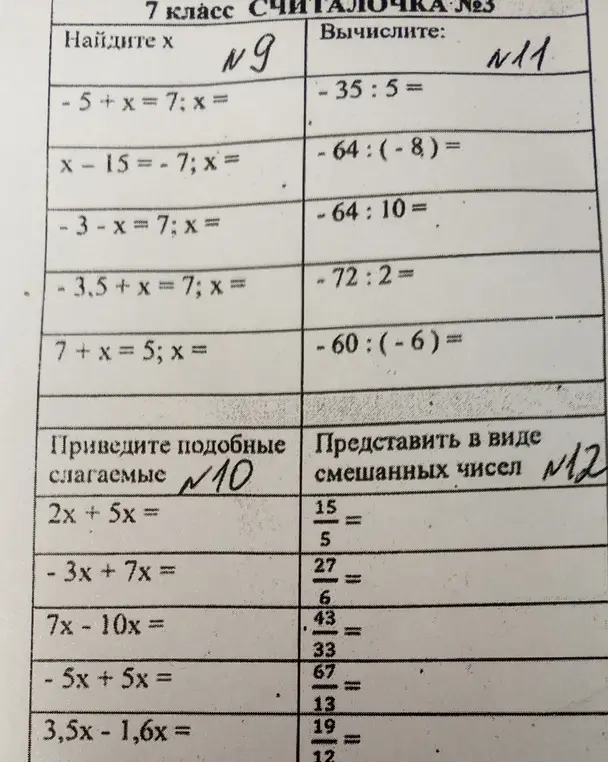 7 класс СЧИТАЛОЧКА №3
Найдите х №9
- 5 + x = 7; x =
x – 15 = - 7; x =
- 3 - x = 7; x =
- 3,5 + x = 7; x =
7 + x = 5; x =
Вычислите: №11
- 35 : 5 =
- 64 : ( - 8 ) =
- 64 : 10 =
- 72 : 2 =
- 60 : ( - 6 ) =
Приведите подобные
слагаемые №10
2x + 5x =
- 3x + 7x =
7x - 10x =
- 5x + 5x =
3,5x - 1,6x =
Представить в виде
смешанных чисел №12
15/5 =
27/6 =
43/33 =
67/13 =
19/12 =